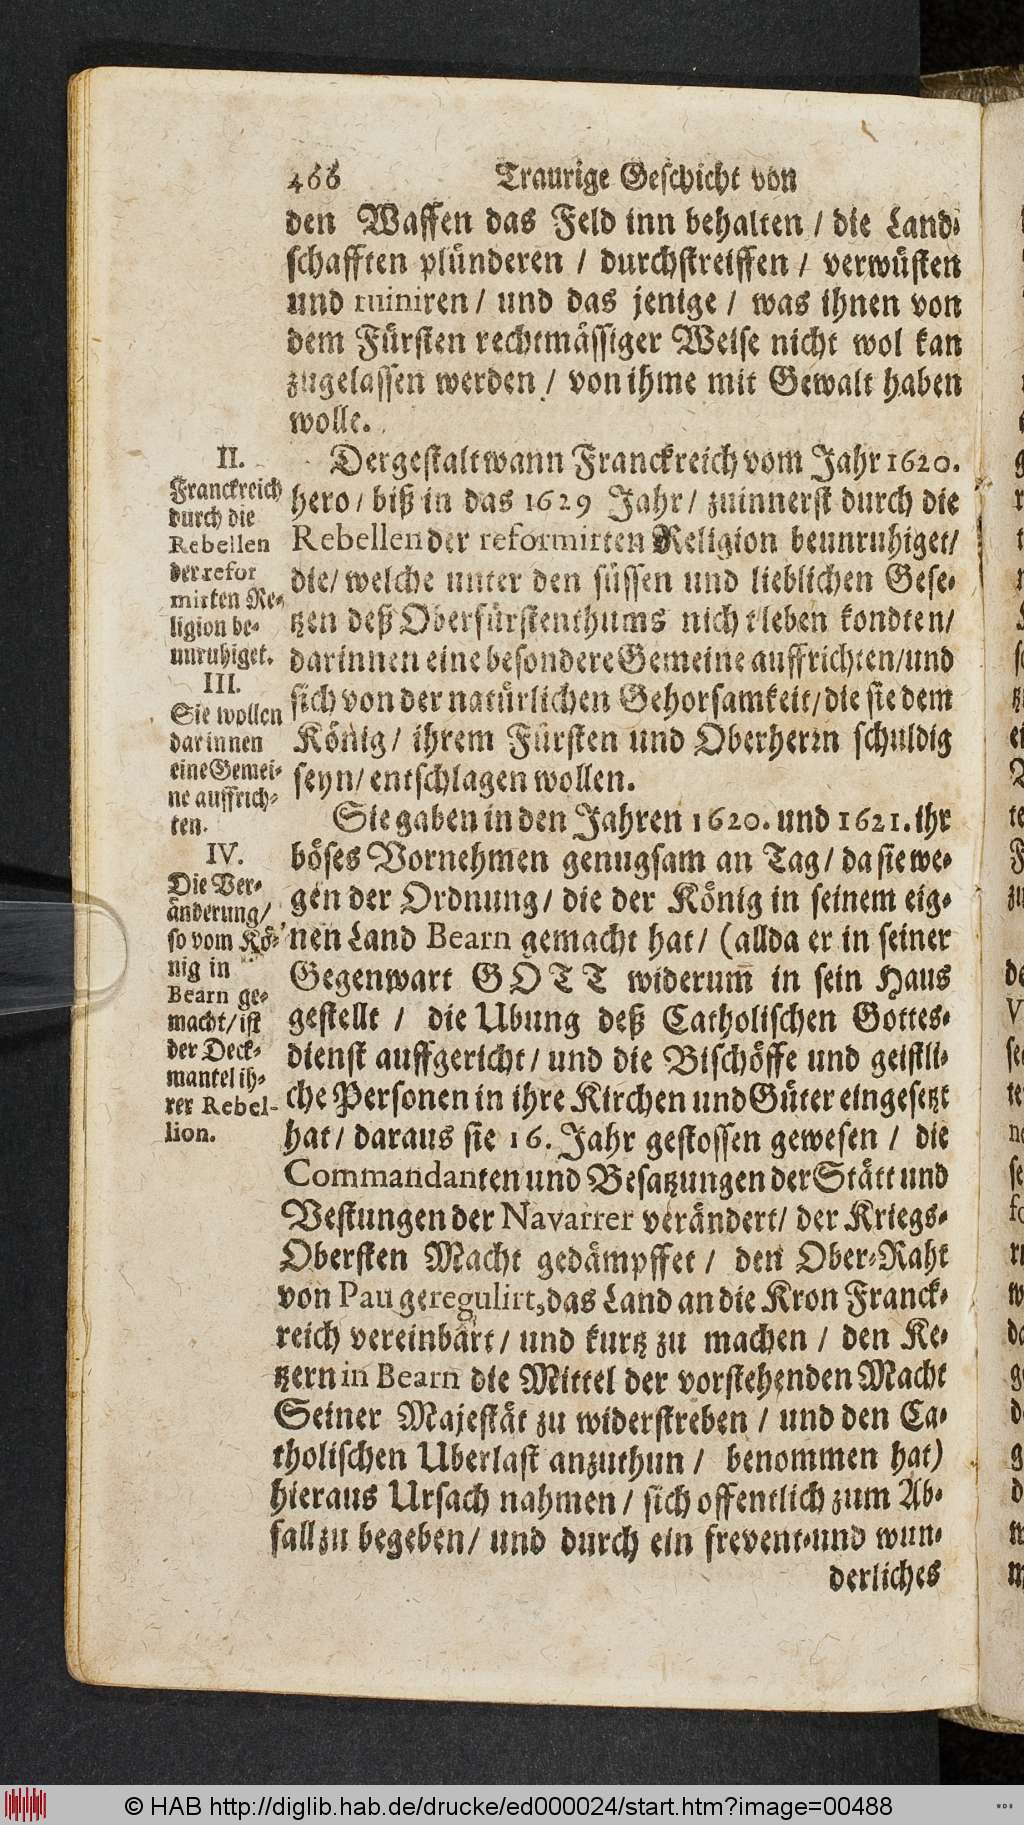 466 Traurige Geschicht von
den Waffen das Feld inn behalten / die Land-
schafften plünderen / durchstreiffen / verwüsten
und ruiniren / und das jenige / was ihnen von
dem Fürsten rechtmässiger Weise nicht wol kan
zugelassen werden / von ihme mit Gewalt haben
wolle.
II.
Franckreich
durch die
Rebellen
der refor
mirten Re-
ligion be-
unruhiget.
III.
Sie wollen
darinnen
eine Gemei-
ne auffrich-
ten.
IV.
Die Ver-
änderung /
so vom Kö-
nig in
Bearn ge-
macht / ist
der Deck-
mantel ih-
rer Rebel-
lion.
Dergestalt wann Franckreich vom Jahr 1620.
hero / biß in das 1629 Jahr / zuinnerst durch die
Rebellen der reformirten Religion beunruhiget /
die / welche unter den süssen und lieblichen Gese-
tzen deß Oberfürstenthums nicht leben kondten /
darinnen eine besondere Gemeine auffrichten / und
sich von der natürlichen Gehorsamkeit / die sie dem
König / ihrem Fürsten und Oberherrn schuldig
seyn / entschlagen wollen.
Sie gaben in den Jahren 1620. und 1621. ihr
böses Vornehmen genugsam an Tag / da sie we-
gen der Ordnung / die der König in seinem eig-
nen Land Bearn gemacht hat / (allda er in seiner
Gegenwart GOTT widerum̅ in sein Haus
gestellt / die Ubung deß Catholischen Gottes-
dienst auffgericht / und die Bischöffe und geistli-
che Personen in ihre Kirchen und Güter eingesetzt
hat / daraus sie 16. Jahr gestossen gewesen / die
Commandanten und Besatzungen der Stätt und
Vestungen der Navarrer verändert / der Kriegs-
Obersten Macht gedämpffet / den Ober-Raht
von Pau geregulirt, das Land an die Kron Franck-
reich vereinbart / und kurtz zu machen / den Ke-
tzern in Bearn die Mittel der vorstehenden Macht
Seiner Majestät zu widerstreben / und den Ca-
tholischen Uberlast anzuthun / benommen hat)
hieraus Ursach nahmen / sich offentlich zum Ab-
fall zu begeben / und durch ein frevent- und wun-
derliches
© HAB http://diglib.hab.de/drucke/ed000024/start.htm?image=00488